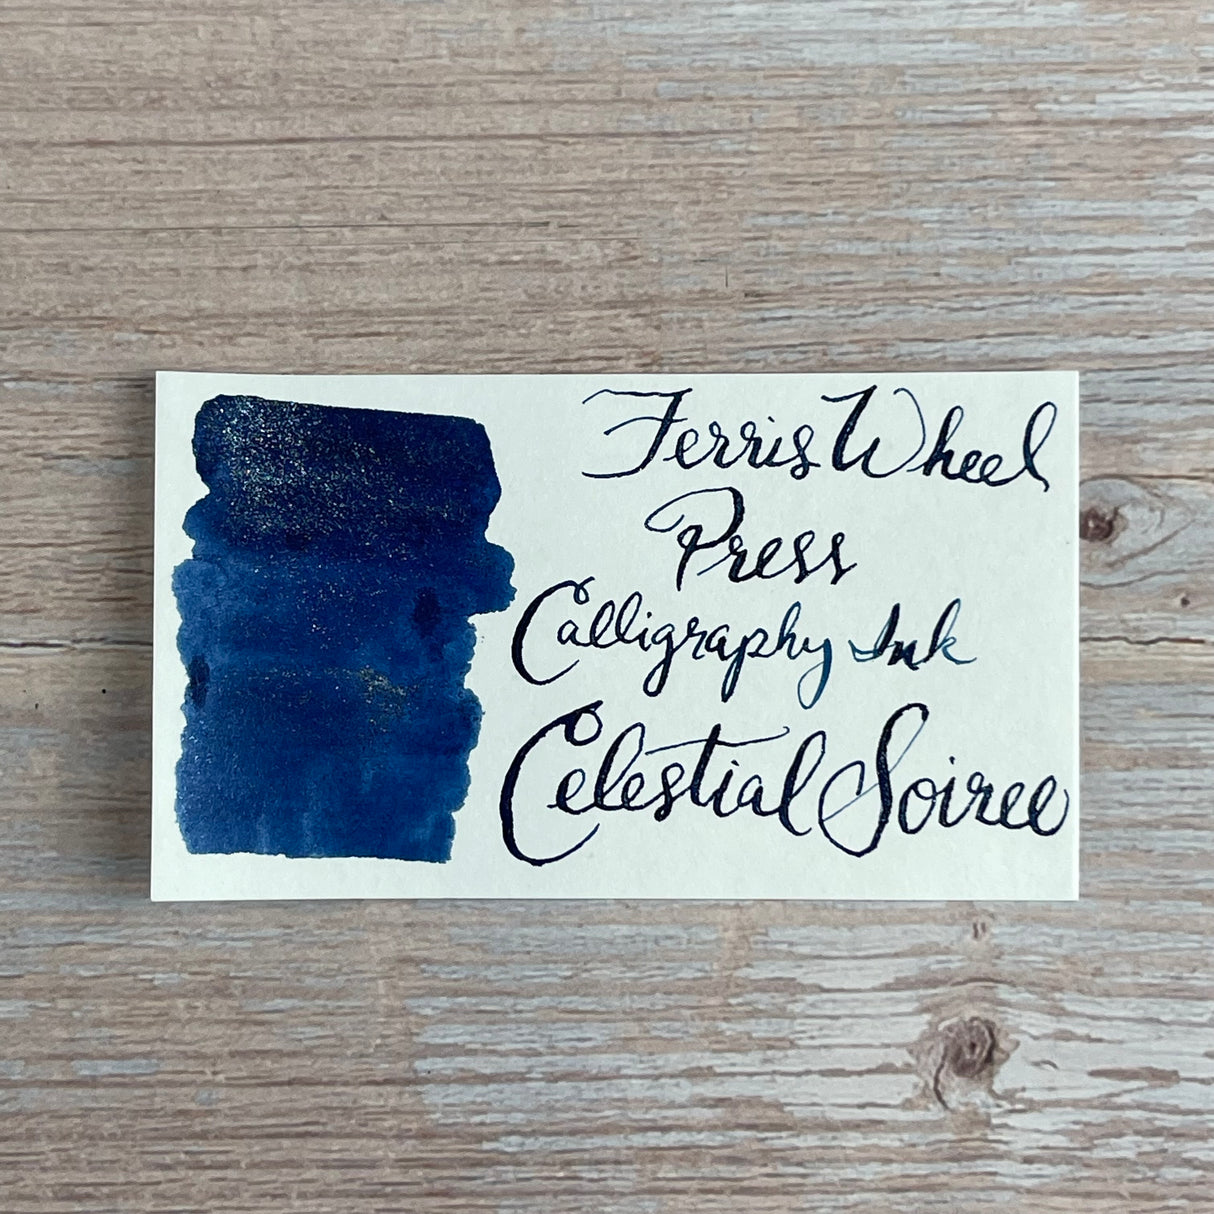 Ferris Wheel
Press
Calligraphy Ink
Celestial Soiree